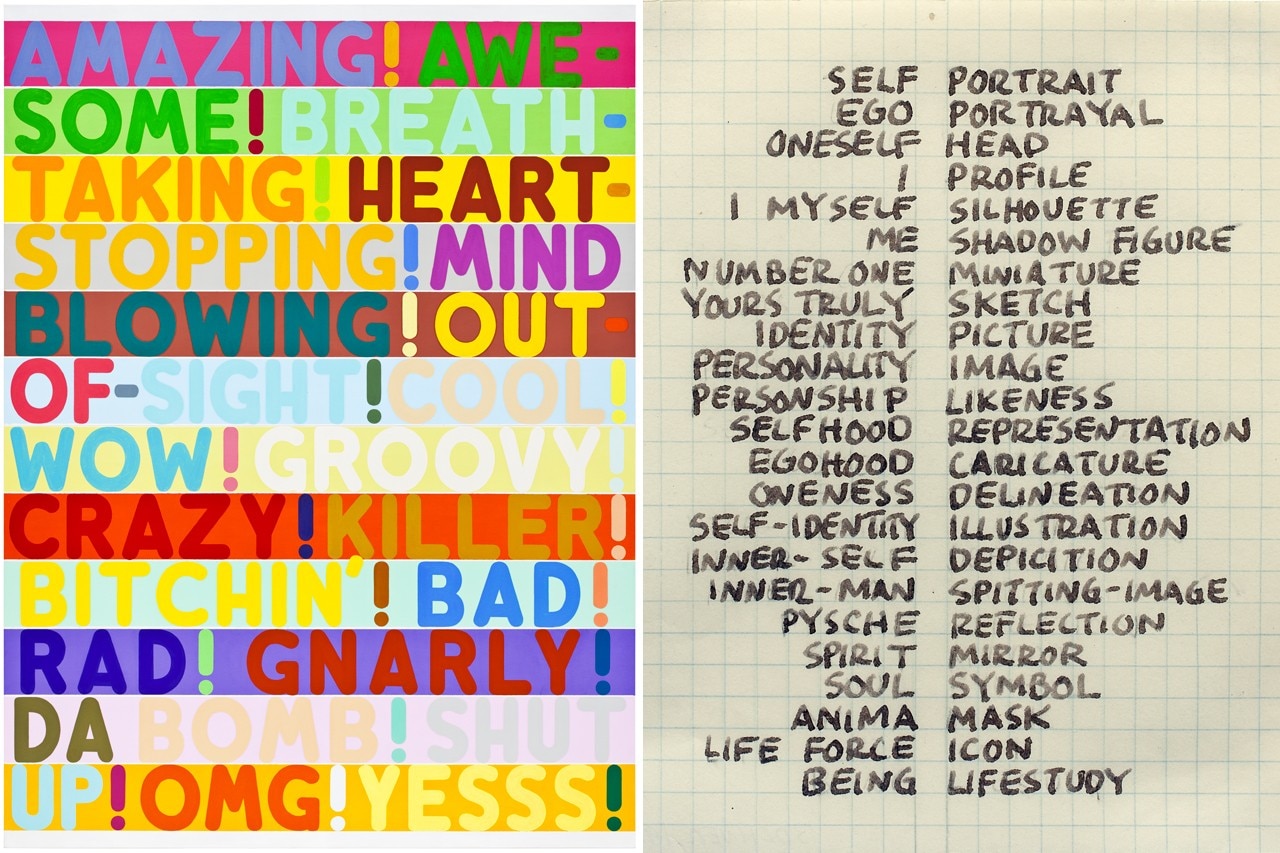 AMAZING! AWE-
SOME! BREATH-
TAKING! HEART-
STOPPING! MIND
BLOWING! OUT-
OF-SIGHT! COOL!
WOW! GROOVY!
CRAZY! KILLER!
BITCHIN'! BAD!
RAD! GNARLY!
DA BOMB! SHUT
UP! OMG! YESSS!
SELF PORTRAIT
EGO PORTRAYAL
ONESELF HEAD
I PROFILE
I MYSELF SILHOUETTE
ME SHADOW FIGURE
NUMBER ONE MINIATURE
YOURS TRULY SKETCH
IDENTITY PICTURE
PERSONALITY IMAGE
PERSONSHIP LIKENESS
SELFHOOD REPRESENTATION
EGOHOOD CARICATURE
ONENESS DELINEATION
SELF-IDENTITY ILLUSTRATION
INNER-SELF DEPICITION
INNER-MAN SPITTING-IMAGE
PYSCHE REFLECTION
SPIRIT MIRROR
SOUL SYMBOL
ANIMA MASK
LIFE FORCE ICON
BEING LIFESTUDY